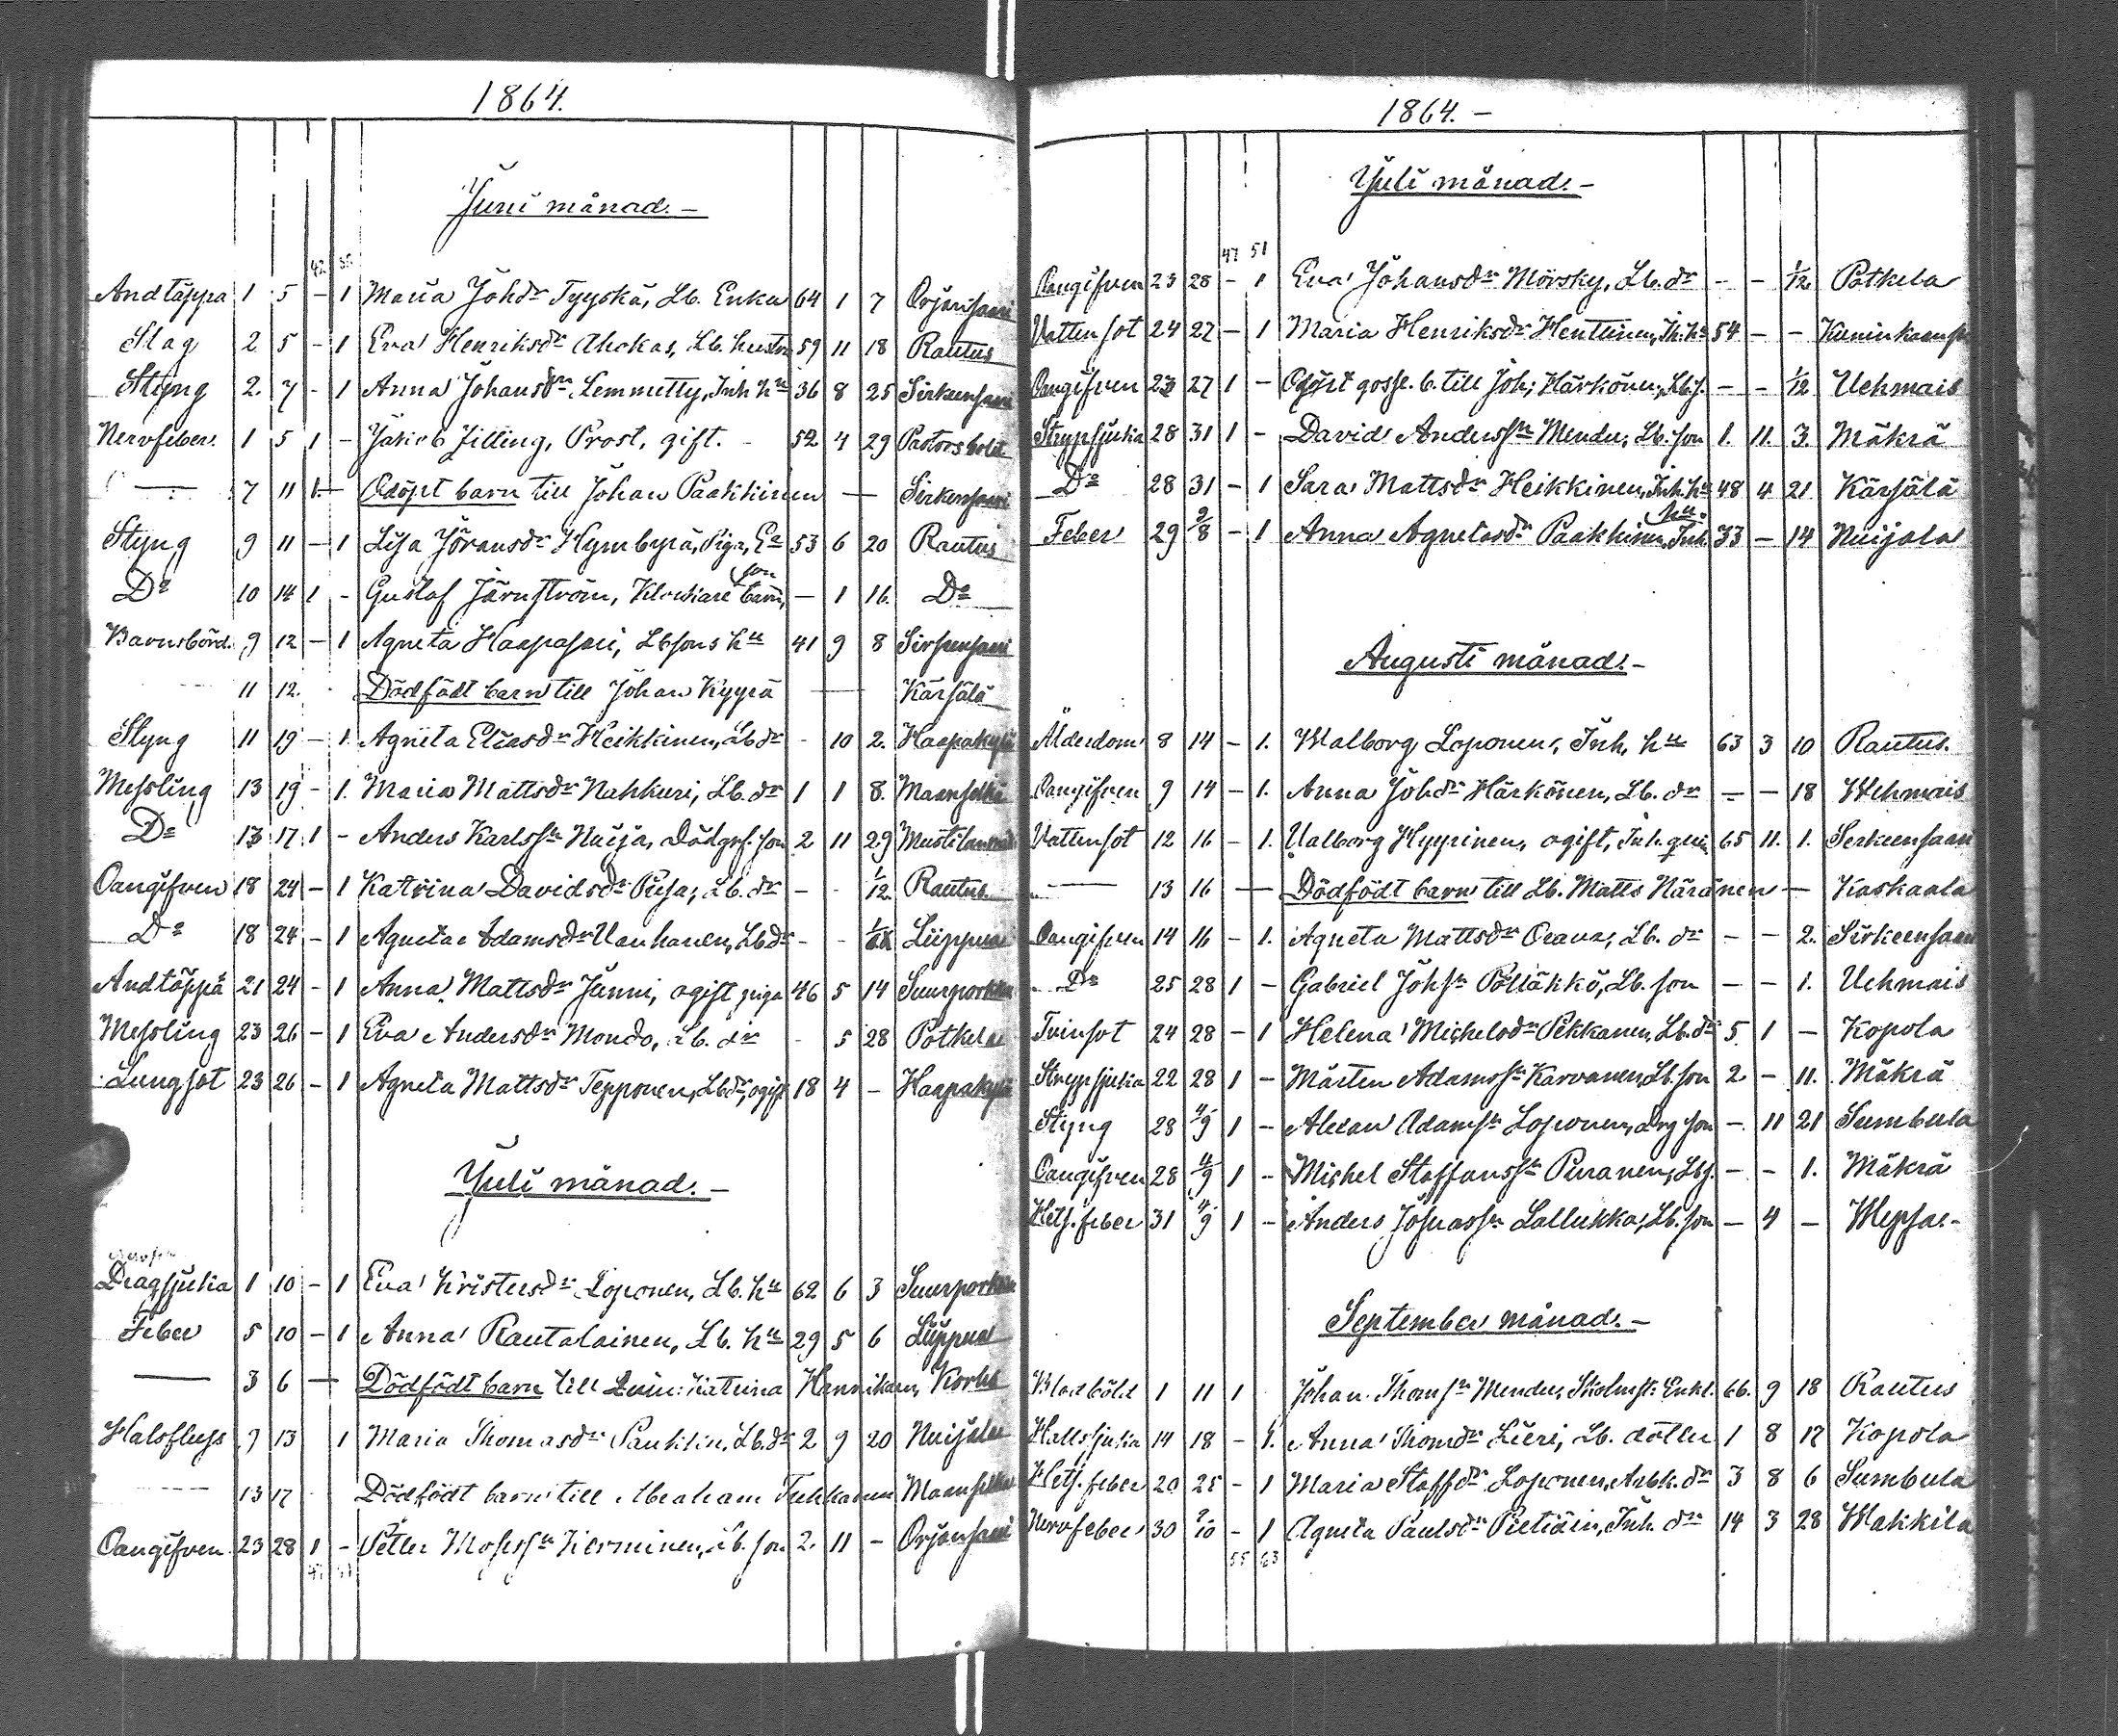 1864.
Juni månad.-
42 35
Andtäppa 1 5 - 1 Maria Johdr Tyyskä, Lb. Enka 64 1 7 Orjansaari
Slag 2 5 - 1 Eva Henriksdr Ahokas, Lb. hustru 59 11 18 Rautus
Styng 2 7 - 1 Anna Johansdr Lemmetty, Inh. hu 36 8 25 Sirkensaari
Nervfeber 1 5 1 - Jakob Zilling, Prost, gift. - 52 4 29 Pastorsbolet
— 7 11 1 - Odöpt barn till Johan Paakkinen — Sirkensaari
Styng 9 11 - 1 Lisa Göransdr Hymbyrä, Piga, Ea 53 6 20 Rautus
Do 10 14 1 - Gustaf Järnström, Klockare barn, son - 1 16. Do
Barnsbörd. 9 12 - 1 Agneta Haapasari, Lbsons hu 41 9 8 Sirkensaari
11 12. Dödfödt barn till Johan Kyyrä — Kärsälä
Styng 11 19 - 1. Agneta Eliasdr Heikkinen, Lb dr - 10 2. Haapakylä
Messling 13 19 - 1. Maria Mattsdr Nahkuri, Lb. dr 1 1 8. Maanselkä
Do 13 17 1 - Anders Karlssn Nuija, Dödgrf. son 2 11 29
Oangifven 18 24 - 1 Katrina Davidsdr Pusa, Lb. dr - - 1/12 Rautus.
Do 18 24 - 1 Agneta Adamsdr Vanhanen, Lb dr - - Liippua
Andtäppa 21 24 - 1 Anna Mattsdr Junni, ogift piga 46 5 14 Suurporkku
Messling 23 26 - 1 Eva Andersdr Mondo, Lb. dr - 5 28 Potkela
Lungsot 23 26 - 1 Agneta Mattsdr Tepponen, Lb dr, ogift 18 4 - Haapakylä
Juli månad.-
Dragsjuka 1 10 - 1 Eva Kristersdr Loponen, Lb. hu 62 6 3 Suurporkku
Feber 5 10 - 1 Anna Rautalainen, Lb. hu 29 5 6 Liippua
— 3 6 — Dödfödt barn till Katrina Hannikain, Korhe
Halsfluss 9 13 1 Maria Thomasdr Paukkin, Lb. dr 2 9 20 Nuijala
13 17 Dödfödt barn till Abraham Tuhkanen Maanselkä
Oangifven 23 28 1 - Petter Mosssn Kerminen, Lb. son 2. 11 - Orjansaari
1864.-
Juli månad.-
47 51
Oangifven 23 28 - 1 Eva Johansdr Mörsky, Lb. dr - - 1/12 Potkela
Vattensot 24 27 - 1 Maria Henriksdr Henttinen, Ih. hu 54 - -
Oangifven 23 27 1 - Odöpt gosse. b. till Joh: Härkönen, Lb. s. - - 1/12 Uchmais
Strypsjuka 28 31 1 - David Anderssn Mendu, Lb. son 1. 11. 3. Mäkrä
Do 28 31 - 1 Sara Mattsdr Heikkinen, Inh. hu 48 4 21 Kärsälä
Feber 29 2/8 - 1 Anna Agnetasdr Paakkinen, Inh. hu. 33 - 14 Nuijala
Augusti månad.-
Ålderdom 8 14 - 1. Walborg Loponen, Inh. hu 63 3 10 Rautus.
Oangifven 9 14 - 1. Anna Johdr Härkönen, Lb. dr - - 18 Wehmais
Vattensot 12 16 - 1. Valborg Hyyrinen, ogift, Inh. qvin 65 11. 1. Serkeensaari
— 13 16 — Dödfödt barn till Lb. Matts Näränen — Kaskaala
Oangifven 14 16 - 1. Agneta Mattsdr Orava, Lb. dr - - 2. Sirkeensaari
Do 25 28 1 - Gabriel Johsn Pöllákkö, Lb. son - - 1. Uehmais
Tvinsot 24 28 - 1 Helena Michelsdr Pekkanen, Lb. dr 5 1 - Kopola
Strypsjuka 22 28 1 - Mårten Adamssn Karvanen, Lb. son 2 - 11. Mäkrä
Styng 28 4/9 1 - Adamsn Loponen, drg son - 11 21 Sumbula
Oangifven 28 4/9 1 - Michel Staffanssn Puranen, Lb s. - - 1. Mäkrä
Hets. feber 31 4/9 1 - Anders Josuassn Lallukka, Lb. son - 4 - Wepsa.-
September månad.-
Blodböld 1 11 1 Johan Thomsn Mendu, Enkl. 66. 9 18 Rautus
Halssjuka 14 18 - 1. Anna Thomdr Lieri, Lb. dotter 1 8 17 Kopola
Hets. feber 20 25 - 1 Maria Staffdr Loponen, Arbk. dr 3 8 6 Sumbula
Nervfeber 30 2/10 - 1 Agneta Paulsdr Pietiäin, Inh. dr 14 3 28 Makkila
55 63